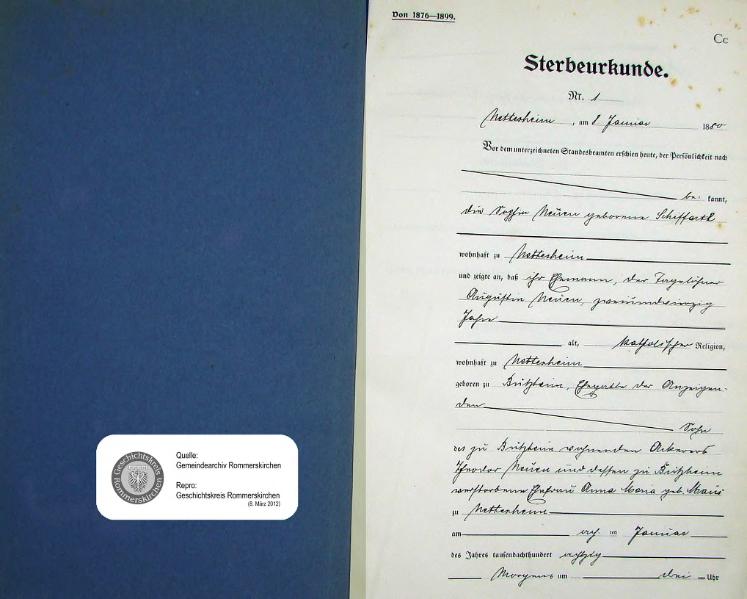 Quelle:
Gemeindearchiv Rommerskirchen
Repro:
Geschichtskreis Rommerskirchen
(8. März 2012)
Geschichtskreis
Rommerskirchen
Von 1876—1899.
Cc
Sterbeurkunde.
Nr. 1
Nettesheim, am 8 Januar 1880
Vor dem unterzeichneten Standesbeamten erschien heute, der Persönlichkeit nach
be kannt,
die Sophia Neuen geborene
wohnhaft zu Nettesheim
und zeigte an, daß ihr Ehemann, der Tagelöhner
Augustin Neuen, zweiundvierzig
Jahre
alt, katholischer Religion,
wohnhaft zu Nettesheim
geboren zu Bützheim, Ehegatte der Anzeigen-
den
Sohn
des zu Bützheim wohnenden Ackerers
Theodor Neuen und dessen zu Bützheim
verstorbene Ehefrau Anna Maria geb.
zu Nettesheim
am acht ten Januar
des Jahres tausendachthundert achtzig
Morgens um drei Uhr